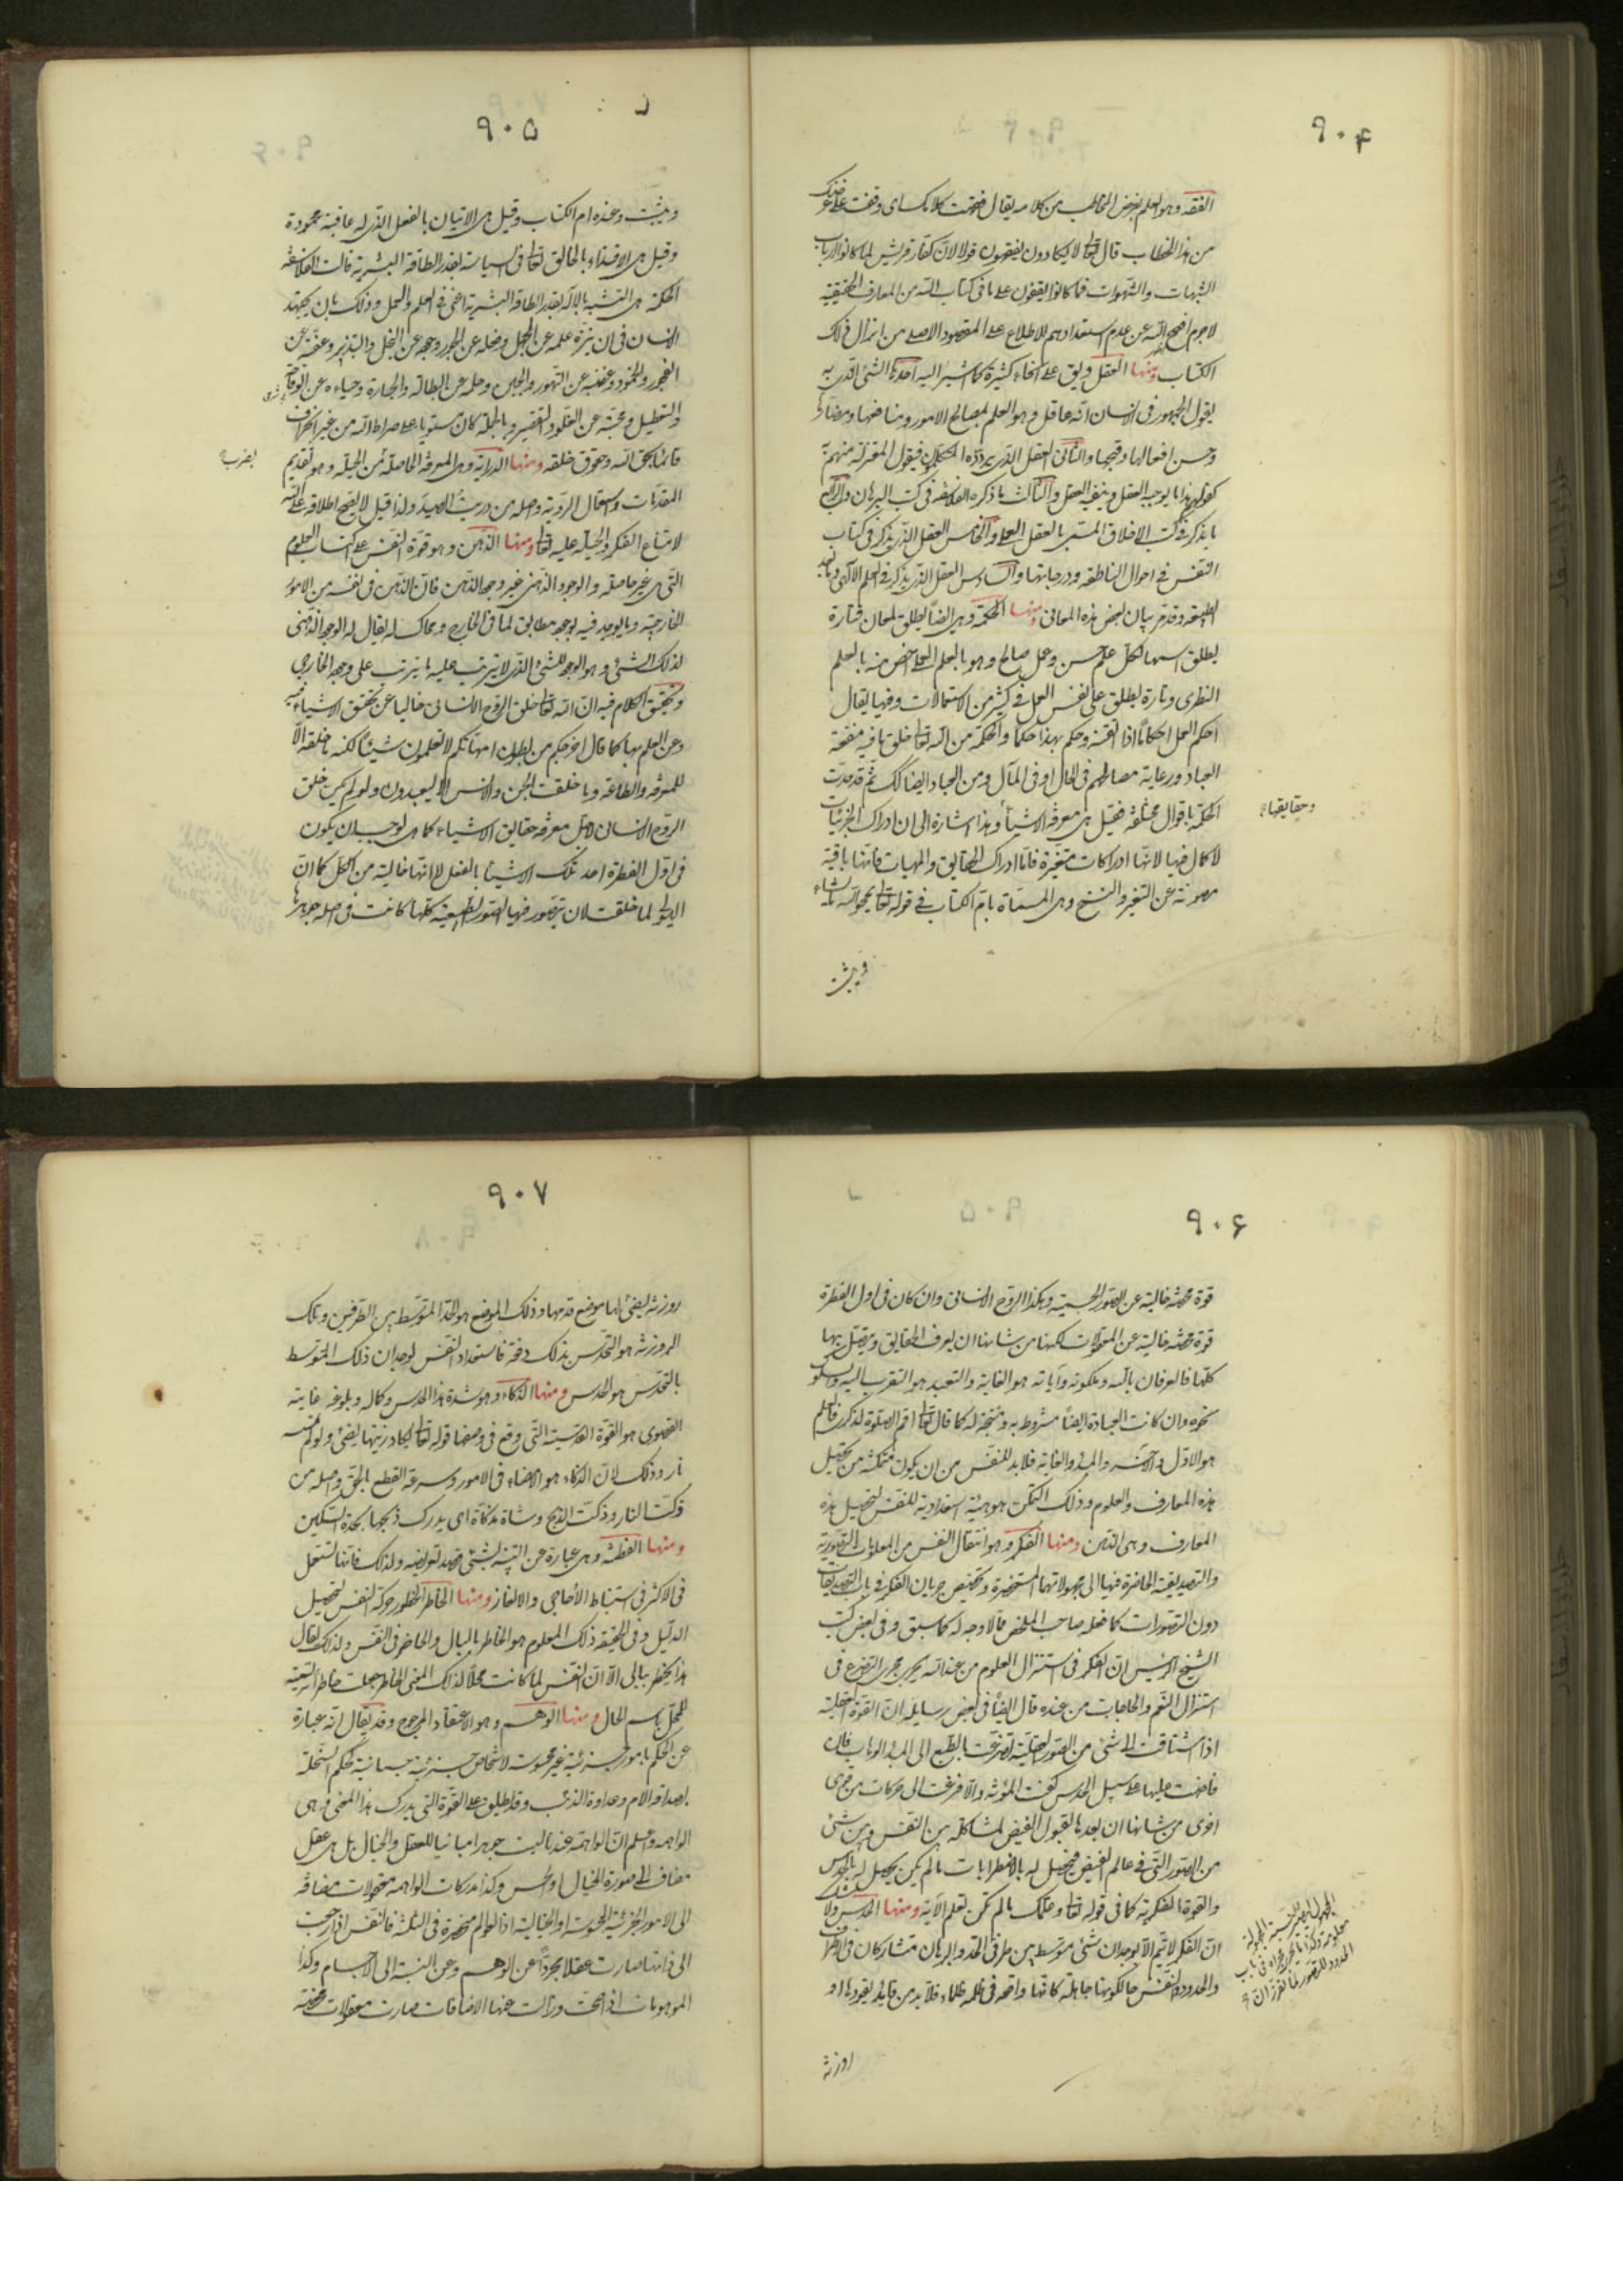 ٩٠۴
الفقه وهو العلم بغرض المخاطب من كلامه يقال فقهت كلامك اى وقفت على غرضك
من هذا الخطاب قال تعالى لا يكادون يفقهون قولا لان كفار قريش لما كانوا ارباب
الشبهات والشهوات فما كانوا يقفون على ما فى كتاب الله من المعارف الحقيقية
لاجرم افصح الله عن عدم استعدادهم للاطلاع على المقصود الاصلى من انزال ذلك
الكتاب ومنها العقل ويق على انحاء كثيرة كما اشير اليه احدها الشئ الذى به
يقول الجمهور فى الانسان انه عاقل وهو العلم بمصالح الامور ومنافعها ومضارها
وحسن افعالها وقبحها والثانى العقل الذى يردده المتكلمون فيقول المعتزلة منهم
كقولهم هذا ما يوجبه العقل وينفيه العقل والثالث ما ذكره الفلاسفة فى كتب البرهان والرابع
ما يذكر فى كتب الاخلاق المسمى بالعقل العملى والخامس العقل الذى يذكر فى كتاب
النفس فى احوال الناطقة ودرجاتها والسادس العقل الذى يذكر فى العلم الالهى وما بعد
الطبيعة وقد مر بيان بعض هذه المعانى ومنها الحكمة وهى ايضا يطلق لمعان فتارة
يطلق اسمها لكل علم حسن وعمل صالح وهو بالعلم العملى اخص منه بالعلم
النظرى وتارة يطلق على نفس العمل فى كثير من الاستعمالات وفيها يقال
احكم العمل احكاما اذا اتقنه وحكم بهذا حكما والحكمة من الله تعالى خلق ما فيه منفعة
العباد ورعاية مصالحهم فى الحال او فى المآل ومن العباد ايضا كذلك ثم قد حدت
الحكمة باقوال مختلفة فقيل هى معرفة الاشياء وهذا اشارة الى ان ادراك الجزئيات
وحقايقها
لا كمال فيها لانها ادراكات متغيرة فاما ادراك الحقايق والمهيات فانها باقية
مصونة عن التغير والنسخ وهى المسماة بام الكتاب فى قوله تعالى يمحو الله ما يشاء
ويثبت
٩٠۵
ويثبت وعنده ام الكتاب وقيل هى الاتيان بالفعل الذى له عاقبة محمودة
وقيل هى الاقتداء بالخالق تعالى فى السياسة بقدر الطاقة البشرية قالت الفلاسفة
الحكمة هى التشبه بالاله بقدر الطاقة البشرية اعنى فى العلم والعمل وذلك بان يجتهد
الانسان فى ان ينزه علمه عن الجهل وفعله عن الجور وجوده عن البخل والتبذير وعفته عن
الفجور والخمود وغضبه عن التهور والجبن وحلمه عن البطالة والجسارة وحياءه عن الوقاحة
والتعطيل ومحبته عن الغلو والتقصير وبالجملة كان مستويا على صراط الله من غير انحراف
قائما بحق الله وحقوق خلقه ومنها الدراية وهى المعرفة الحاصلة من الحيلة وهو تقديم
بضرب
المقدمات واستعمال الروية واصله من دريت الصيد ولذا قيل لا يصح اطلاقه على الله
لامتناع الفكر والحيلة عليه تعالى ومنها الذهن وهو قوة النفس على اكتساب العلوم
التى هى غير حاصلة والوجود الذهنى غير وجود الذهن فان الذهن فى نفسه من الامور
الخارجية وما يوجد فيه بوجود مطابق لما فى الخارج ومحاك له يقال له الوجود الذهنى
لذلك الشئ وهو الوجود للشئ الذى لا يترتب عليه ما يترتب على وجوده الخارجى
وتحقيق الكلام فيه ان الله تعالى خلق الروح الانسانى خاليا عن تحقق الاشياء فيه
وعن العلم بها كما قال اخرجكم من بطون امهاتكم لا تعلمون شيئا لكنه ما خلقه الا
للمعرفة والطاعة وما خلقت الجن والانس الا ليعبدون ولو لم يكن خلق
الروح الانسانى لاجل معرفة حقايق الاشياء كما هى لوجب ان يكون
فى اول الفطرة احد تلك الاشياء بالفعل لا انها خالية من الكل كما ان
الهيولى لما خلقت لان يتصور فيها الصور الطبيعية كلها كانت فى اصل جوهرها
٩٠۶
قوة محضة خالية عن الصور الجسمية وهكذا الروح الانسانى وان كان فى اول الفطرة
قوة محضة خالية عن المعقولات لكنها من شانها ان يعرف الحقايق ويتصل بها
كلها فالعرفان بالله وملكوته وآياته هو الغاية والتعبد هو التقرب اليه والسلوك
نحوه وان كانت العبادة ايضا مشروطة به ونتيجة له كما قال تعالى اقم الصلوة لذكرى فالعلم
هو الاول والاخر والمبدأ والغاية فلا بد للنفس من ان يكون متمكنة من تحصيل
هذه المعارف والعلوم وذلك التمكن هو هيئة استعدادية للنفس لتحصيل هذه
المعارف وهى الذهن ومنها الفكر وهو انتقال النفس من المعلومات التصورية
والتصديقية الحاضرة فيها الى مجهولاتها المستحضرة وتخصيص جريان الفكر فى باب التصديقات
دون التصورات كما فعله صاحب الملخص مما لا وجه له كما سبق وفى بعض كتب
الشيخ الرئيس ان الفكر فى استنزال العلوم من عند الله يجرى مجرى التضرع فى
استنزال النعم والحاجات من عنده قال ايضا فى بعض رسايله ان القوة العقلية
اذا اشتاقت الى شئ من الصور العقلية تضرعت بالطبع الى المبدأ الوهاب فان
فاضت عليها على سبيل الحدس كفت المؤنة والا فزعت الى حركات من قوى
اخرى من شانها ان يعدها لقبول الفيض لمشاكلة بين النفس وبين شئ
من الصور التى فى عالم الفيض فيحصل له بالاضطراب ما لم يكن يحصل له بالحدس
والقوة الفكرية كما فى قوله تعالى وعلمك ما لم تكن تعلم الاية ومنها الحدس ولا شك
ان الفكر لا يتم الا بوجدان شئ متوسط بين طرفى
الحد والبرهان متشاركان فى الاطراف
والحدود والنفس حالكونها جاهلة كانها واقعة فى ظلمة ظلماء فلا بد من قايد يقودها او
روزنة
٩٠٧
روزنة يضئ لها موضع قدمها وذلك الموضع هو الحد المتوسط بين الطرفين وتلك
الروزنة هو التحدس بذلك دفعة فاستعداد النفس لوجدان ذلك المتوسط
بالتحدس هو الحدس ومنها الذكاء وهو شدة هذا الحدس وكماله وبلوغه غايته
القصوى هو القوة القدسية التى وقع فى وصفها قوله تعالى يكاد زيتها يضئ ولو لم تمسسه
نار وذلك لان الذكاء هو الامضاء فى الامور وسرعة القطع بالحق واصله من
ذكت النار وذكت الذبح وشاة مذكاة اى يدرك ذبحها بحدة السكين
ومنها الفطنة وهى عبارة عن التنبه لشئ قصد تعريضه ولذلك فانها تستعمل
فى الاكثر فى استنباط الاحاجى والالغاز ومنها الخاطر الخطور حركة النفس لتحصيل
الدليل وفى الحقيقة ذلك المعلوم هو الخاطر بالبال والحاضر فى النفس ولذلك يقال
هذا يخطر ببالى الا ان النفس لما كانت محلا لذلك المعنى الخاطر جعلت خاطرا تسمية
للمحل باسم الحال ومنها الوهم وهو الاعتقاد المرجوح وقد يقال انه عبارة
عن الحكم بامور جزئية غير محسوسة لاشخاص جزئية جسمانية كحكم السخلة
بصداقة الام وعداوة الذئب وقد يطلق على القوة التى يدرك هذا المعنى وهى
الواهمة واعلم ان الواهمة عندنا ليست جوهرا مباينا للعقل والخيال بل هى عقل
مضاف الى صورة الخيال او الحس وكذا مدركات الواهمة معقولات مضافة
الى الامور الجزئية المحسوسة او الخيالية اذ العوالم منحصرة فى الثلثة فالنفس اذا رجعت
الى ذاتها صارت عقلا مجردا عن الوهم وعن النسبة الى الاجسام وكذا
الموهومات اذا صحت وزالت عنها الاضافات صارت معقولات محضة